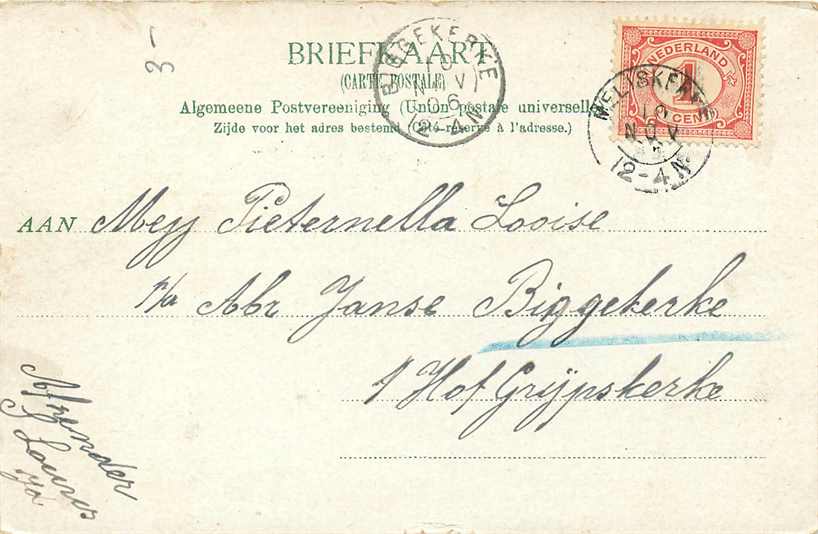 3-
BRIEFKAART
(CARTE POSTALE)
Algemeene Postvereeniging (Union postale universelle)
Zijde voor het adres bestemd (Côté réservé à l'adresse.)
BIGGEKERKE
10 NOV 06
12-4N
NEDERLAND
1
CENT
MELISKERKE
10 NOV
12-4N
AAN Mej Pieternella Looise
p/a Abr Janse Biggekerke
't Hof Grijpskerke
Afzender